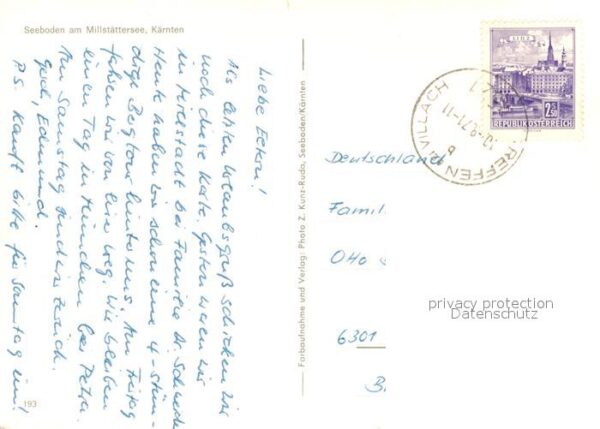 Seeboden am Millstättersee, Kärnten
Liebe Eltern!
Als letzten Urlaubsgruß schicken wir
noch diese Karte. Gestern waren wir
in Millstatt bei Familie Dr. Schwede
Heute haben wir schon eine 4-stün-
dige Bergtour hinter uns. Am Freitag
fahren wir von hier weg. Wir bleiben
einen Tag in München bei Petra.
Am Samstag sind wir zurück.
Edmund.
P.S. Kauft bitte für Samstag ein!
193
Farbaufnahme und Verlag: Photo Z. Kunz-Ruda, Seeboden/Kärnten
LINZ
2.50
REPUBLIK ÖSTERREICH
TREFFEN b. VILLACH
Deutschland
Famil
Otto
6301
privacy protection
Datenschutz